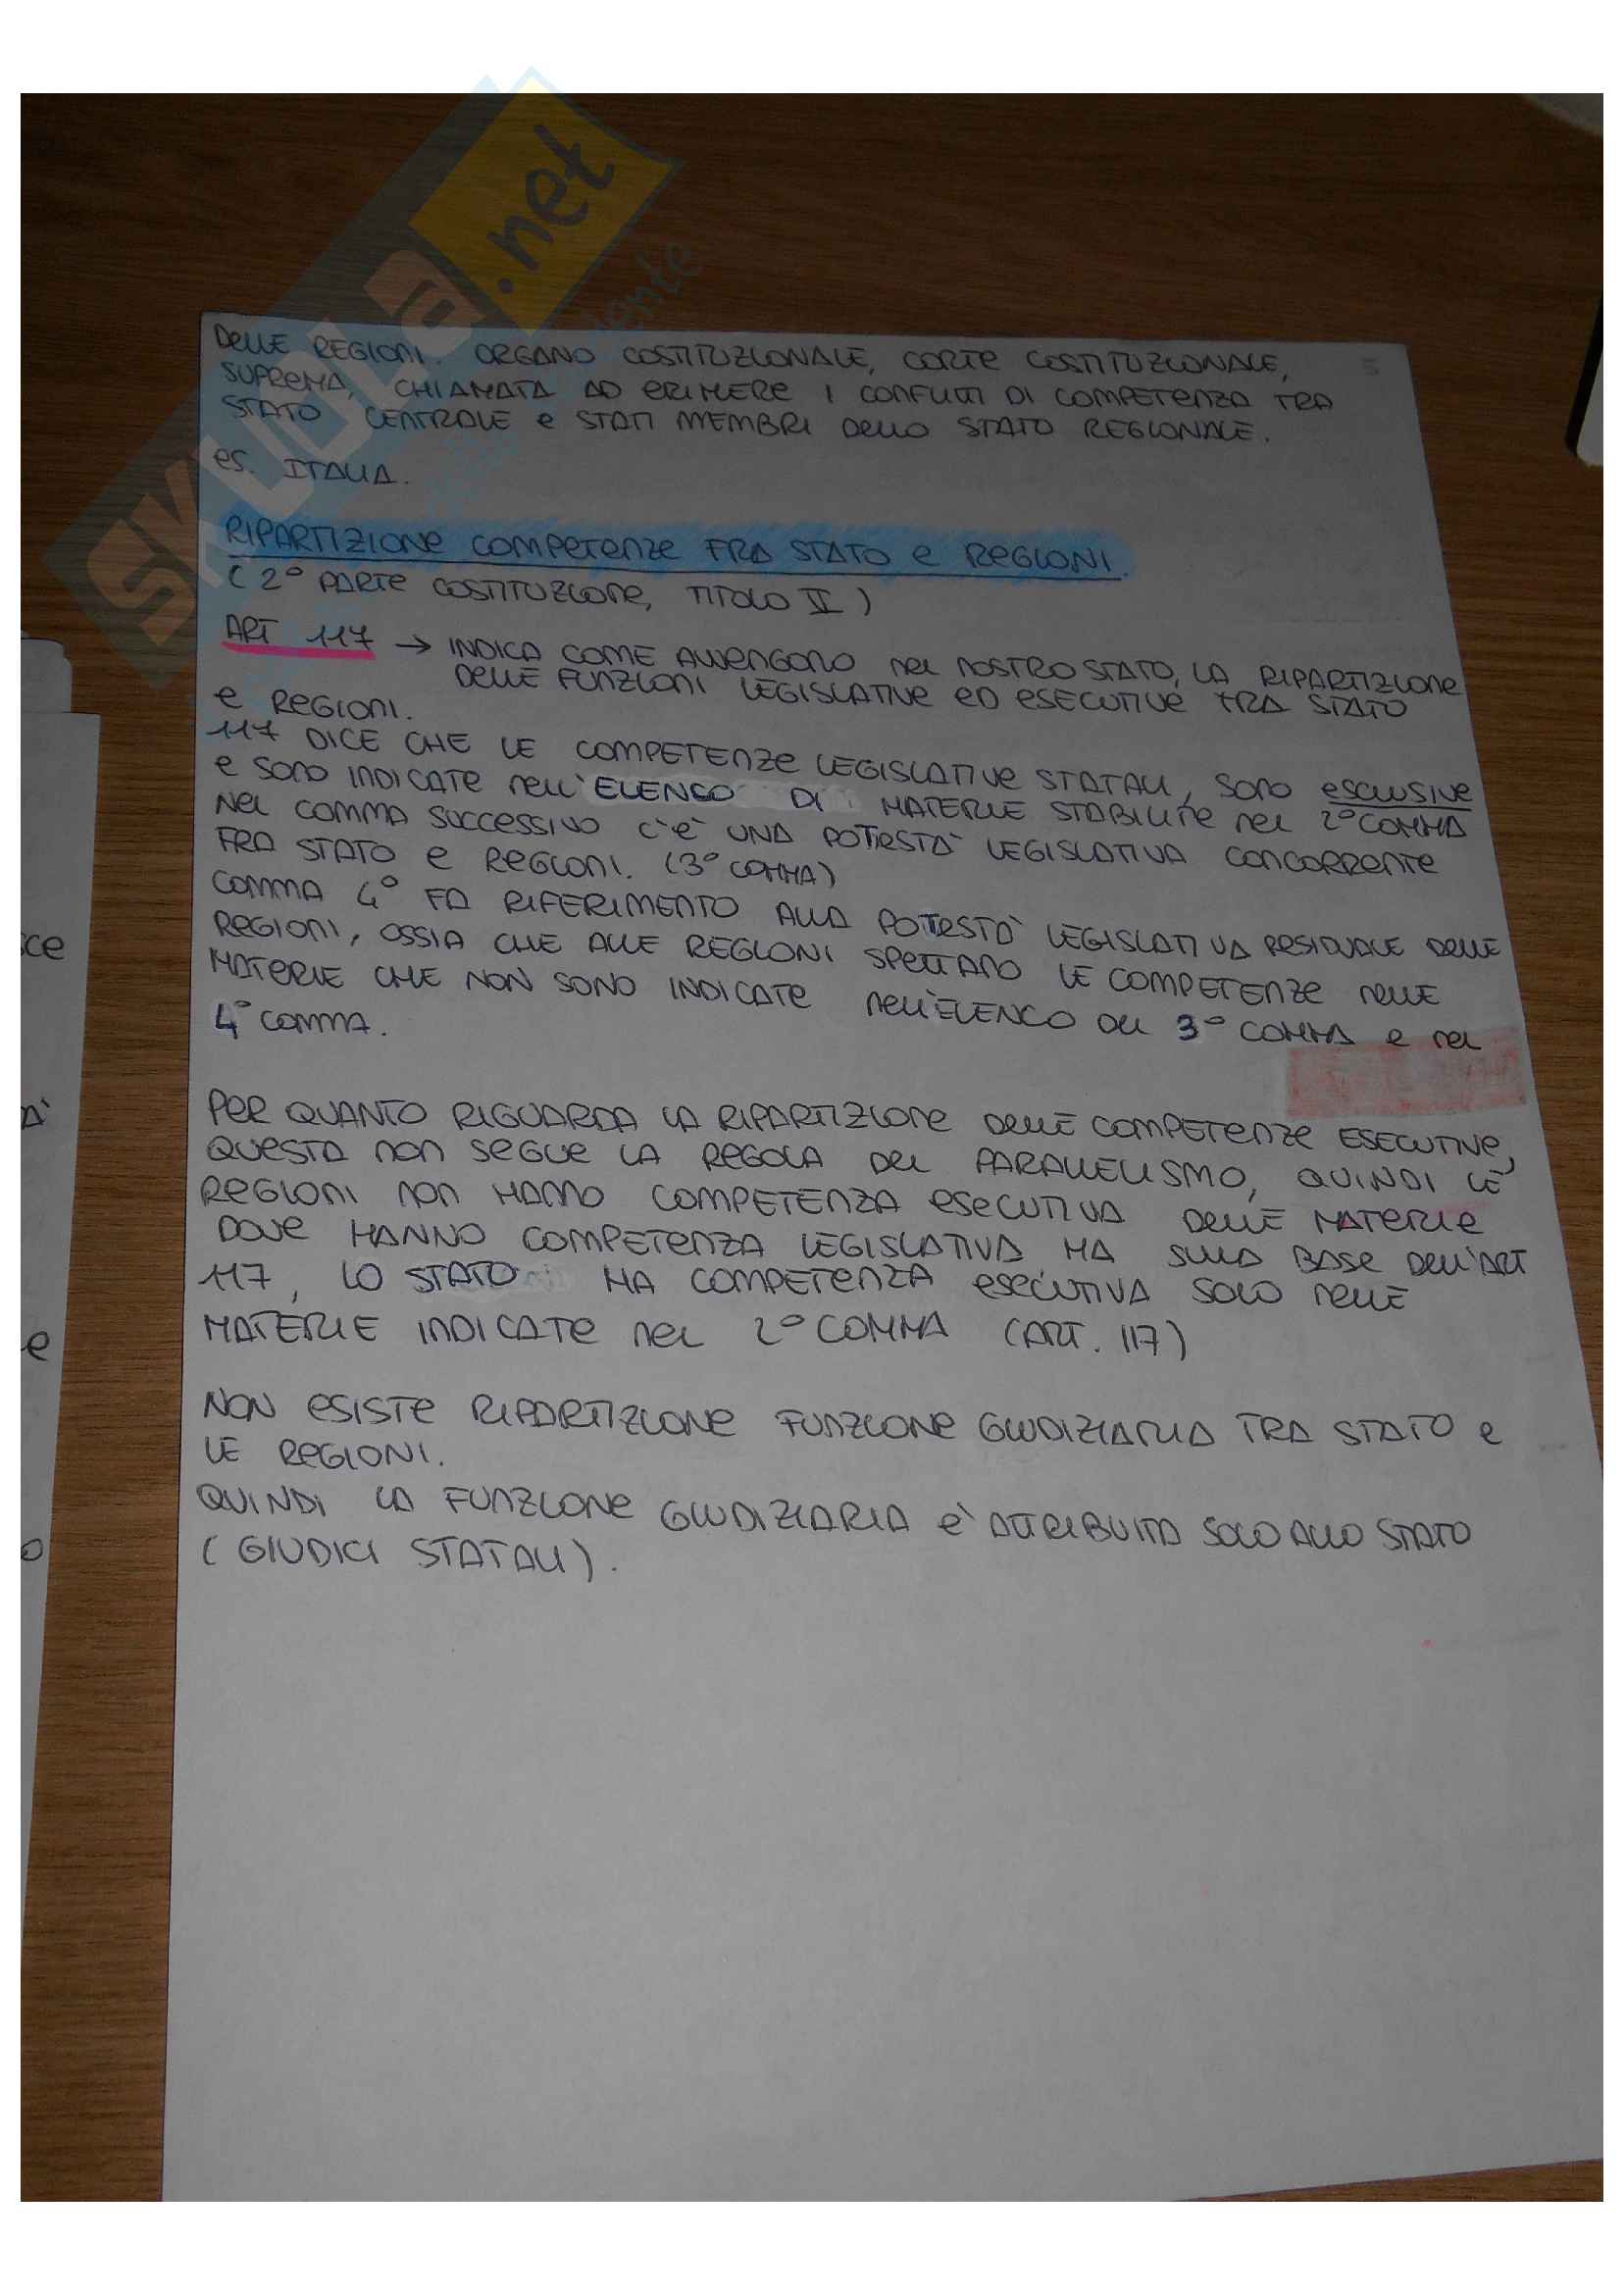 SKUOLA.net
5
DELLE REGIONI. ORGANO COSTITUZIONALE, CORTE COSTITUZIONALE,
SUPREMA, CHIAMATA AD ERIMERE I CONFLITTI DI COMPETENZA TRA
STATO CENTRALE e STATI MEMBRI DELLO STATO REGIONALE.
es. ITALIA.
RIPARTIZIONE COMPETENZE FRA STATO e REGIONI.
(2° PARTE COSTITUZIONE, TITOLO V)
ART 117 → INDICA COME AVVENGONO NEL NOSTRO STATO, LA RIPARTIZIONE
DELLE FUNZIONI LEGISLATIVE ED ESECUTIVE TRA STATO
e REGIONI.
117 DICE CHE LE COMPETENZE LEGISLATIVE STATALI, SONO ESCLUSIVE
e SONO INDICATE NELL'ELENCO DI MATERIE STABILITE NEL 2° COMMA
NEL COMMA SUCCESSIVO C'E' UNA POTESTA' LEGISLATIVA CONCORRENTE
FRA STATO e REGIONI. (3° COMMA)
COMMA 4° FA RIFERIMENTO ALLA POTESTA' LEGISLATIVA RESIDUALE DELLE
REGIONI, OSSIA CHE ALLE REGIONI SPETTANO LE COMPETENZE NELLE
MATERIE CHE NON SONO INDICATE NELL'ELENCO DEL 3° COMMA e NEL
4° COMMA.
PER QUANTO RIGUARDA LA RIPARTIZIONE DELLE COMPETENZE ESECUTIVE,
QUESTA NON SEGUE LA REGOLA DEL PARALLELISMO, QUINDI LE
REGIONI NON HANNO COMPETENZA ESECUTIVA DELLE MATERIE
DOVE HANNO COMPETENZA LEGISLATIVA MA SULLA BASE DELL'ART
117, LO STATO HA COMPETENZA ESECUTIVA SOLO NELLE
MATERIE INDICATE NEL 2° COMMA (ART. 117)
NON ESISTE RIPARTIZIONE FUNZIONE GIUDIZIARIA TRA STATO e
LE REGIONI.
QUINDI LA FUNZIONE GIUDIZIARIA E' ATTRIBUITA SOLO ALLO STATO
(GIUDICI STATALI).